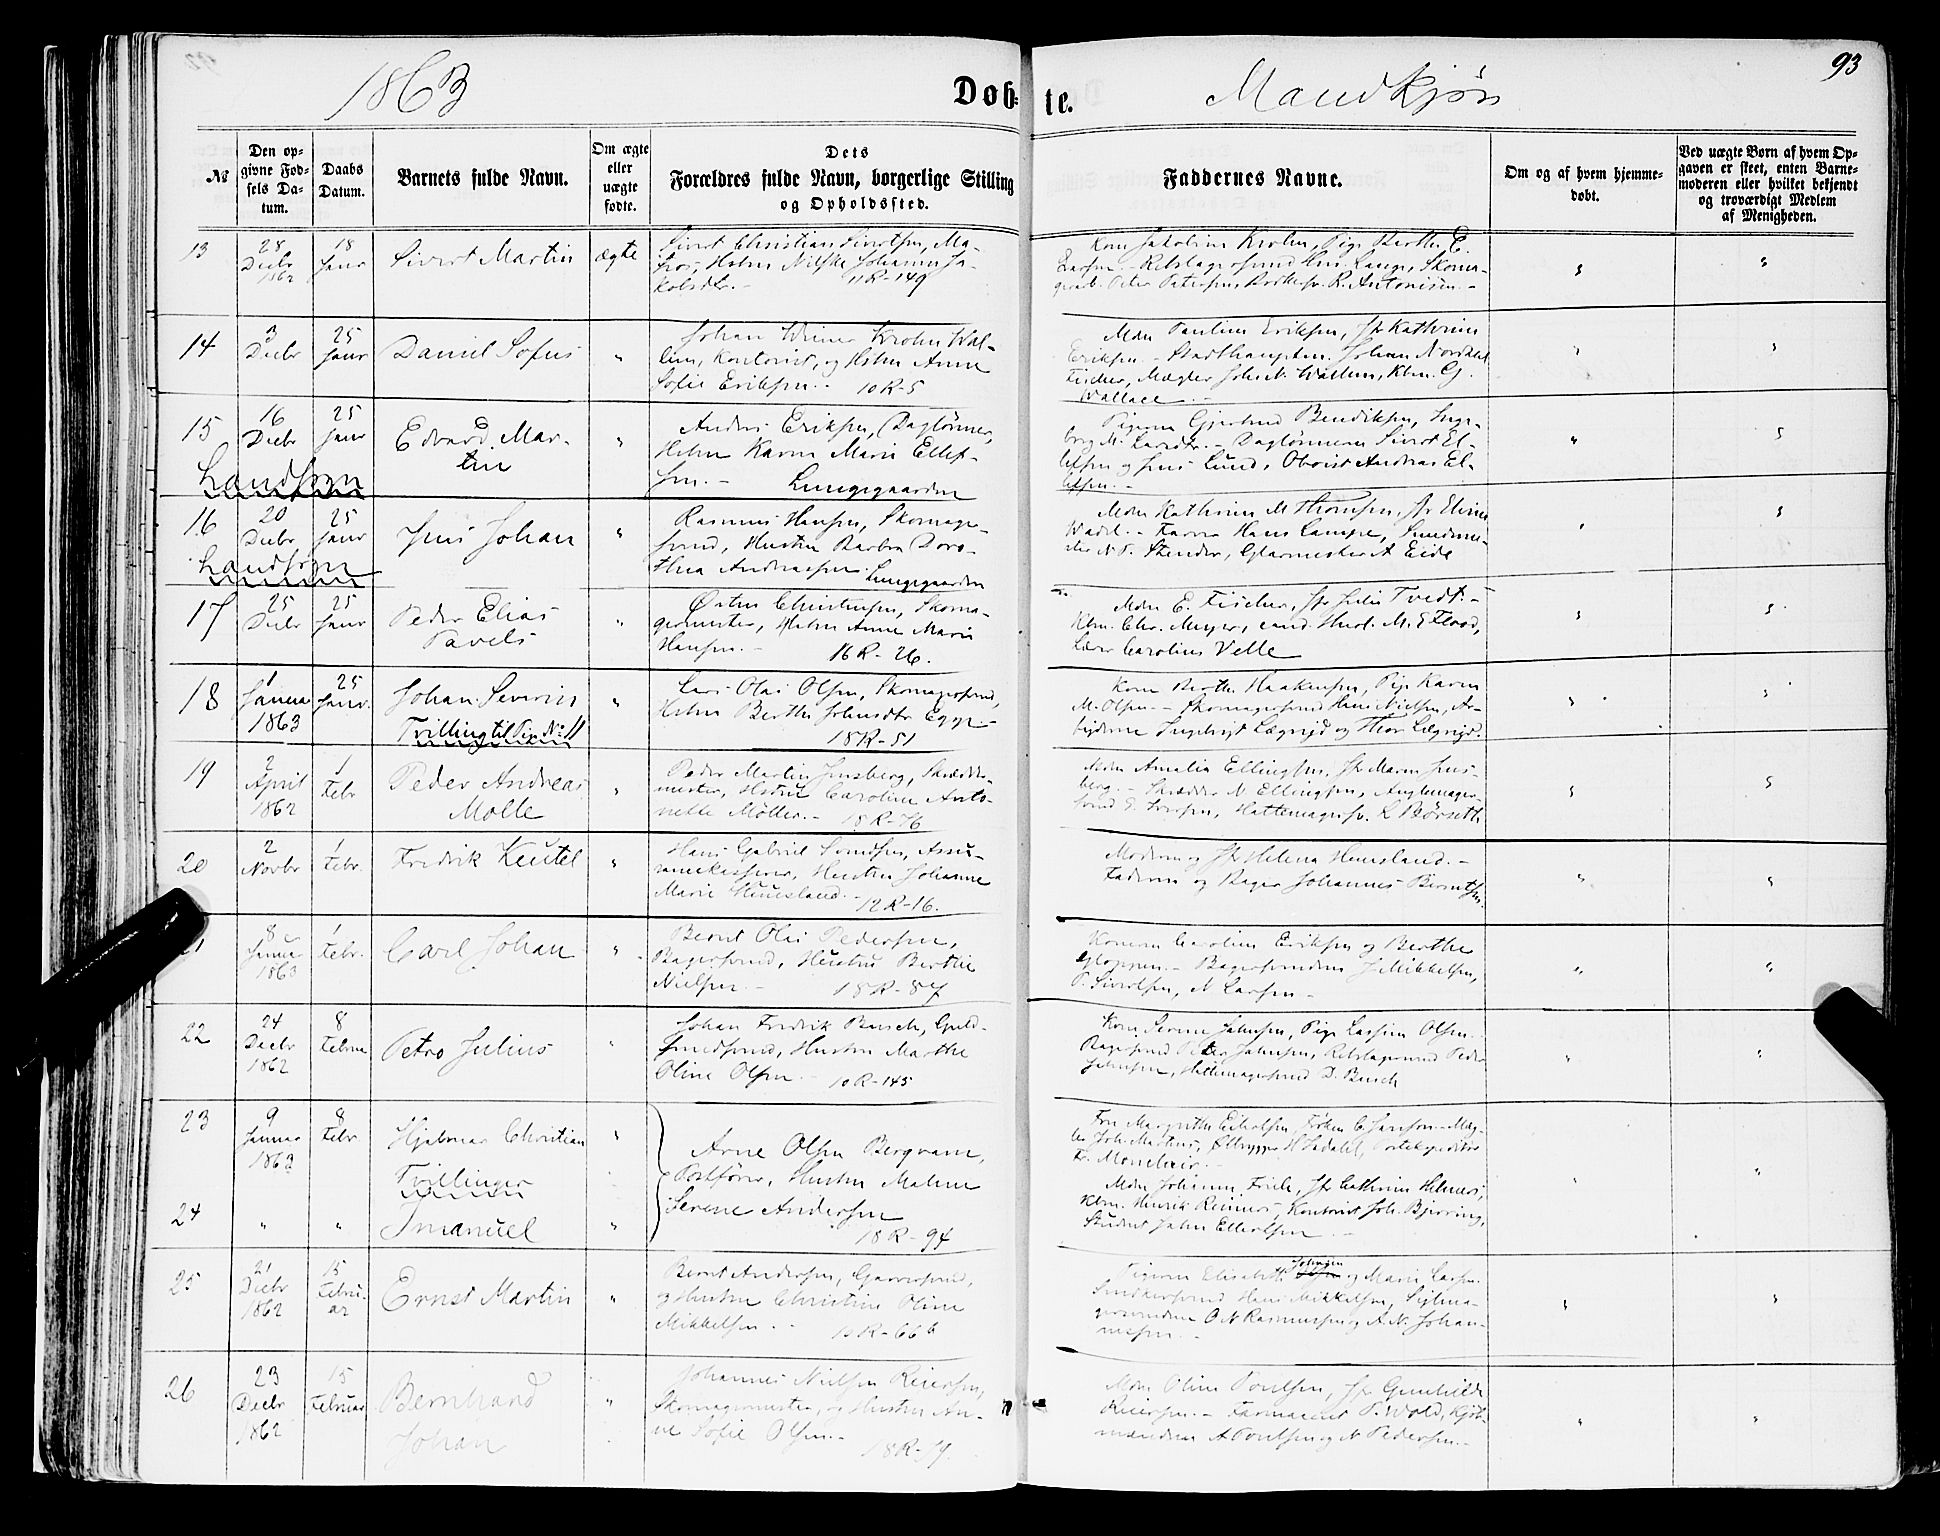 1863
Døb-
te.
Mandkjøn
93
№
Den op-
givne Fød-
sels Da-
tum.
Daabs
Datum.
Barnets fulde Navn.
Om ægte
eller
uægte
fødte.
Dets
Forældres fulde Navn, borgerlige Stilling
og Opholdssted.
Faddernes Navne.
Om og af hvem hjemme-
døbt.
Ved uægte Børn af hvem Op-
gaven er skeet, enten Barne-
moderen eller hvilket bekjendt
og troværdigt Medlem
af Menigheden.
13
28 Decbr 1862
18 Janr
Sivert Martin
ægte
Sivert Christian Sivertsen, Ma-
tros, Hstru Nilske Johanna Ja-
kobsdtr. -
11R-149
Kone Jakobine Krohn, Pige Berthe E.
Larsen. - Rebslagersvend Hans Lange, Skoma-
Peter Petersen, R. Antonisen. -
14
3 Decbr
25 Janr
Daniel Sofus
"
Johan Krohn Wal-
lem, Kontorist, og Hstru Anne
Sofie Eriksen. - 10R-5
Mdm Pauline Eriksen, Jfr Kathrine
Eriksen. - Johan Nordahl
Fischer, Mægler Joh. N. Wallem, Kbm. Cg.
Wallace. -
15
16 Decbr
25 Janr
Edvard Mar-
tin
"
Landsogn
Anders Eriksen, Daglønner,
Hstru Karen Marie Ellef-
sen. - Lungegaarden
Pigerne Gjertrud Bendiksen, Inge-
borg M. Larsdtr. - Daglønnerne Sivert El-
lefsen og Jens Lund, Andreas El-
lefsen. -
16
20 Decbr
25 Janr
Jens Johan
"
Landsogn
Rasmus Hansen, Skomager-
svend, Hustru Barbra Doro-
thea Andreasen. Lungegaarden
Mdm Kathrine M Thomsen, Jfr Eline
Wadel. - Farver Hans Lampe, Smedme-
ster N. P. Stender, Glarmester A Eide
17
25 Decbr
25 Janr
Peder Elias
Pavels
"
Østen Christensen, Skoma-
germester, Hstru Anne Marie
Hansen. - 16R-26.
Mdm E. Fischer, Jfr Julie Tvedt. -
Kbm. Chr. Meyer, cand. theol. M. E Flood,
Lærer Carolius Velle
18
1 Janua 1863
25 Janr.
Johan Severin
Tvilling til Pige No 11
"
Lars Olai Olsen, Skomagersvend,
Hstru Berthe Johnsdtr Egge -
18R-51
Kone Berthe Haakensen, Pige Karen
M. Olsen. - Skomagersvend Hans Nielsen, Ar-
beiderne Ingebrigt Lægreid og Thor Lægreid.
19
2 April 1862
1 Febr
Peder Andreas
Mølle
"
Peder Martin Jensberg, Skrædder-
mester, Hstru Caroline Anto-
nette Möller. - 18R-76
Mdm Amalia Ellingsen, Jfr Maren Jens-
berg. - Skrædder N. Ellingsen,
svend E. Hattemagersv. L Børseth
20
2 Novbr
1 Febr.
Fredrik Keutel
"
Hans Gabriel Assu-
rancekasserer, Hustru Johanne
Marie Huusland. - 12R-16.
Moderen og Jfr Helena Huusland. -
Faderen og Bager Johannes Berntsen.
21
8 Janua 1863
1 Febr.
Carl Johan
"
Bernt Olai Pedersen,
Bagersvend, Hustru Berthe
Nielsen. - 18R-87
Konerne Caroline Eriksen og Berthe
Gloppen. - Bagersvendene J Mikkelsen,
P. Sivertsen, N. Larsen -
22
24 Decbr 1862
8 Februa
Petro Julius
"
Johan Fredrik Busch, Guld-
smedsvend, Hustru Marthe
Oline Olsen. - 10R-145
Kone Serene Johnsen, Pige Olsen.
Bagersvend Peter Johnsen, Rebslagersvend Peder
Johnsen, Hattemagersvend D. Busch
23
9 Januar 1863
8 Febr
Hjalmar Christian
"
Tvillinger
24
"
"
Imanuel
"
Arne Olsen Bergvam,
Postfører, Hustru Malene
Serene Andersen
18R-94
Mdm Johanne Friele, Jfr Cathrine
Kbm. Henrik Reimers, Kontorist Joh. Bjerring,
Student Jahn Ellertsen. -
25
21 Decbr 1862
15 Febru-
ar
Ernst Martin
"
Bernt Andersen, Garversvend,
og Hustru Christine Oline
Mikkelsen. - 10R-66b
Pigerne Elisabeth Johnsen og Marie Larsen.
Snedkersvend Hans Mikkelsen, Seilma-
gersvendene O N Rasmussen og A. N. Johan-
nesen. -
26
23 Decbr 1862
15 Februar
Bernhard
Johan
"
Johannes Nielsen Reiersen,
Skomagermester, og Hustru An-
ne Sofie Olsen. -
18R-79.
Mdm Oline Poulsen, Jfr Gunhilde
Reiersen. - Farmaceut P. Wold, Kjøb-
mændene A Poulsen og N Pedersen. -